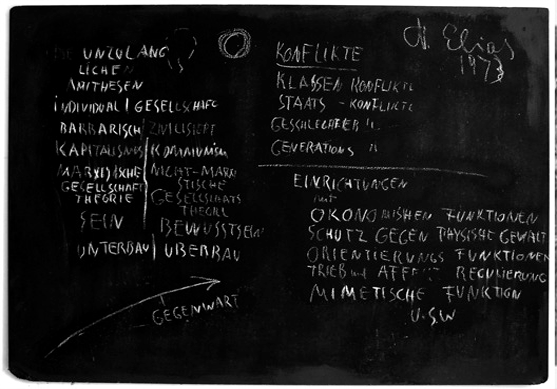 DIE UNZULÄNG
LICHEN
ANTITHESEN
INDIVIDUAL | GESELLSCHAFT
BARBARISCH | ZIVILISIERT
KAPITALISMUS | KOMMUNISM
MARXISTISCHE | NICHT-MARXI
GESELLSCHAFT | STISCHE
THEORIE | GESELLSCHAFTS
THEORIE
SEIN | BEWUSSTSEIN
UNTERBAU | ÜBERBAU
GEGENWART
N. Elias
1973
KONFLIKTE
KLASSEN KONFLIKTE
STAATS - KONFLIKTE
GESCHLECHTER "
GENERATIONS "
EINRICHTUNGEN
mit
ÖKONOMISCHEN FUNKTIONEN
SCHUTZ GEGEN PHYSISCHE GEWALT
ORIENTIERUNGS FUNKTIONEN
TRIEB und AFFEKT REGULIERUNG
MIMETISCHE FUNKTION
U.S.W